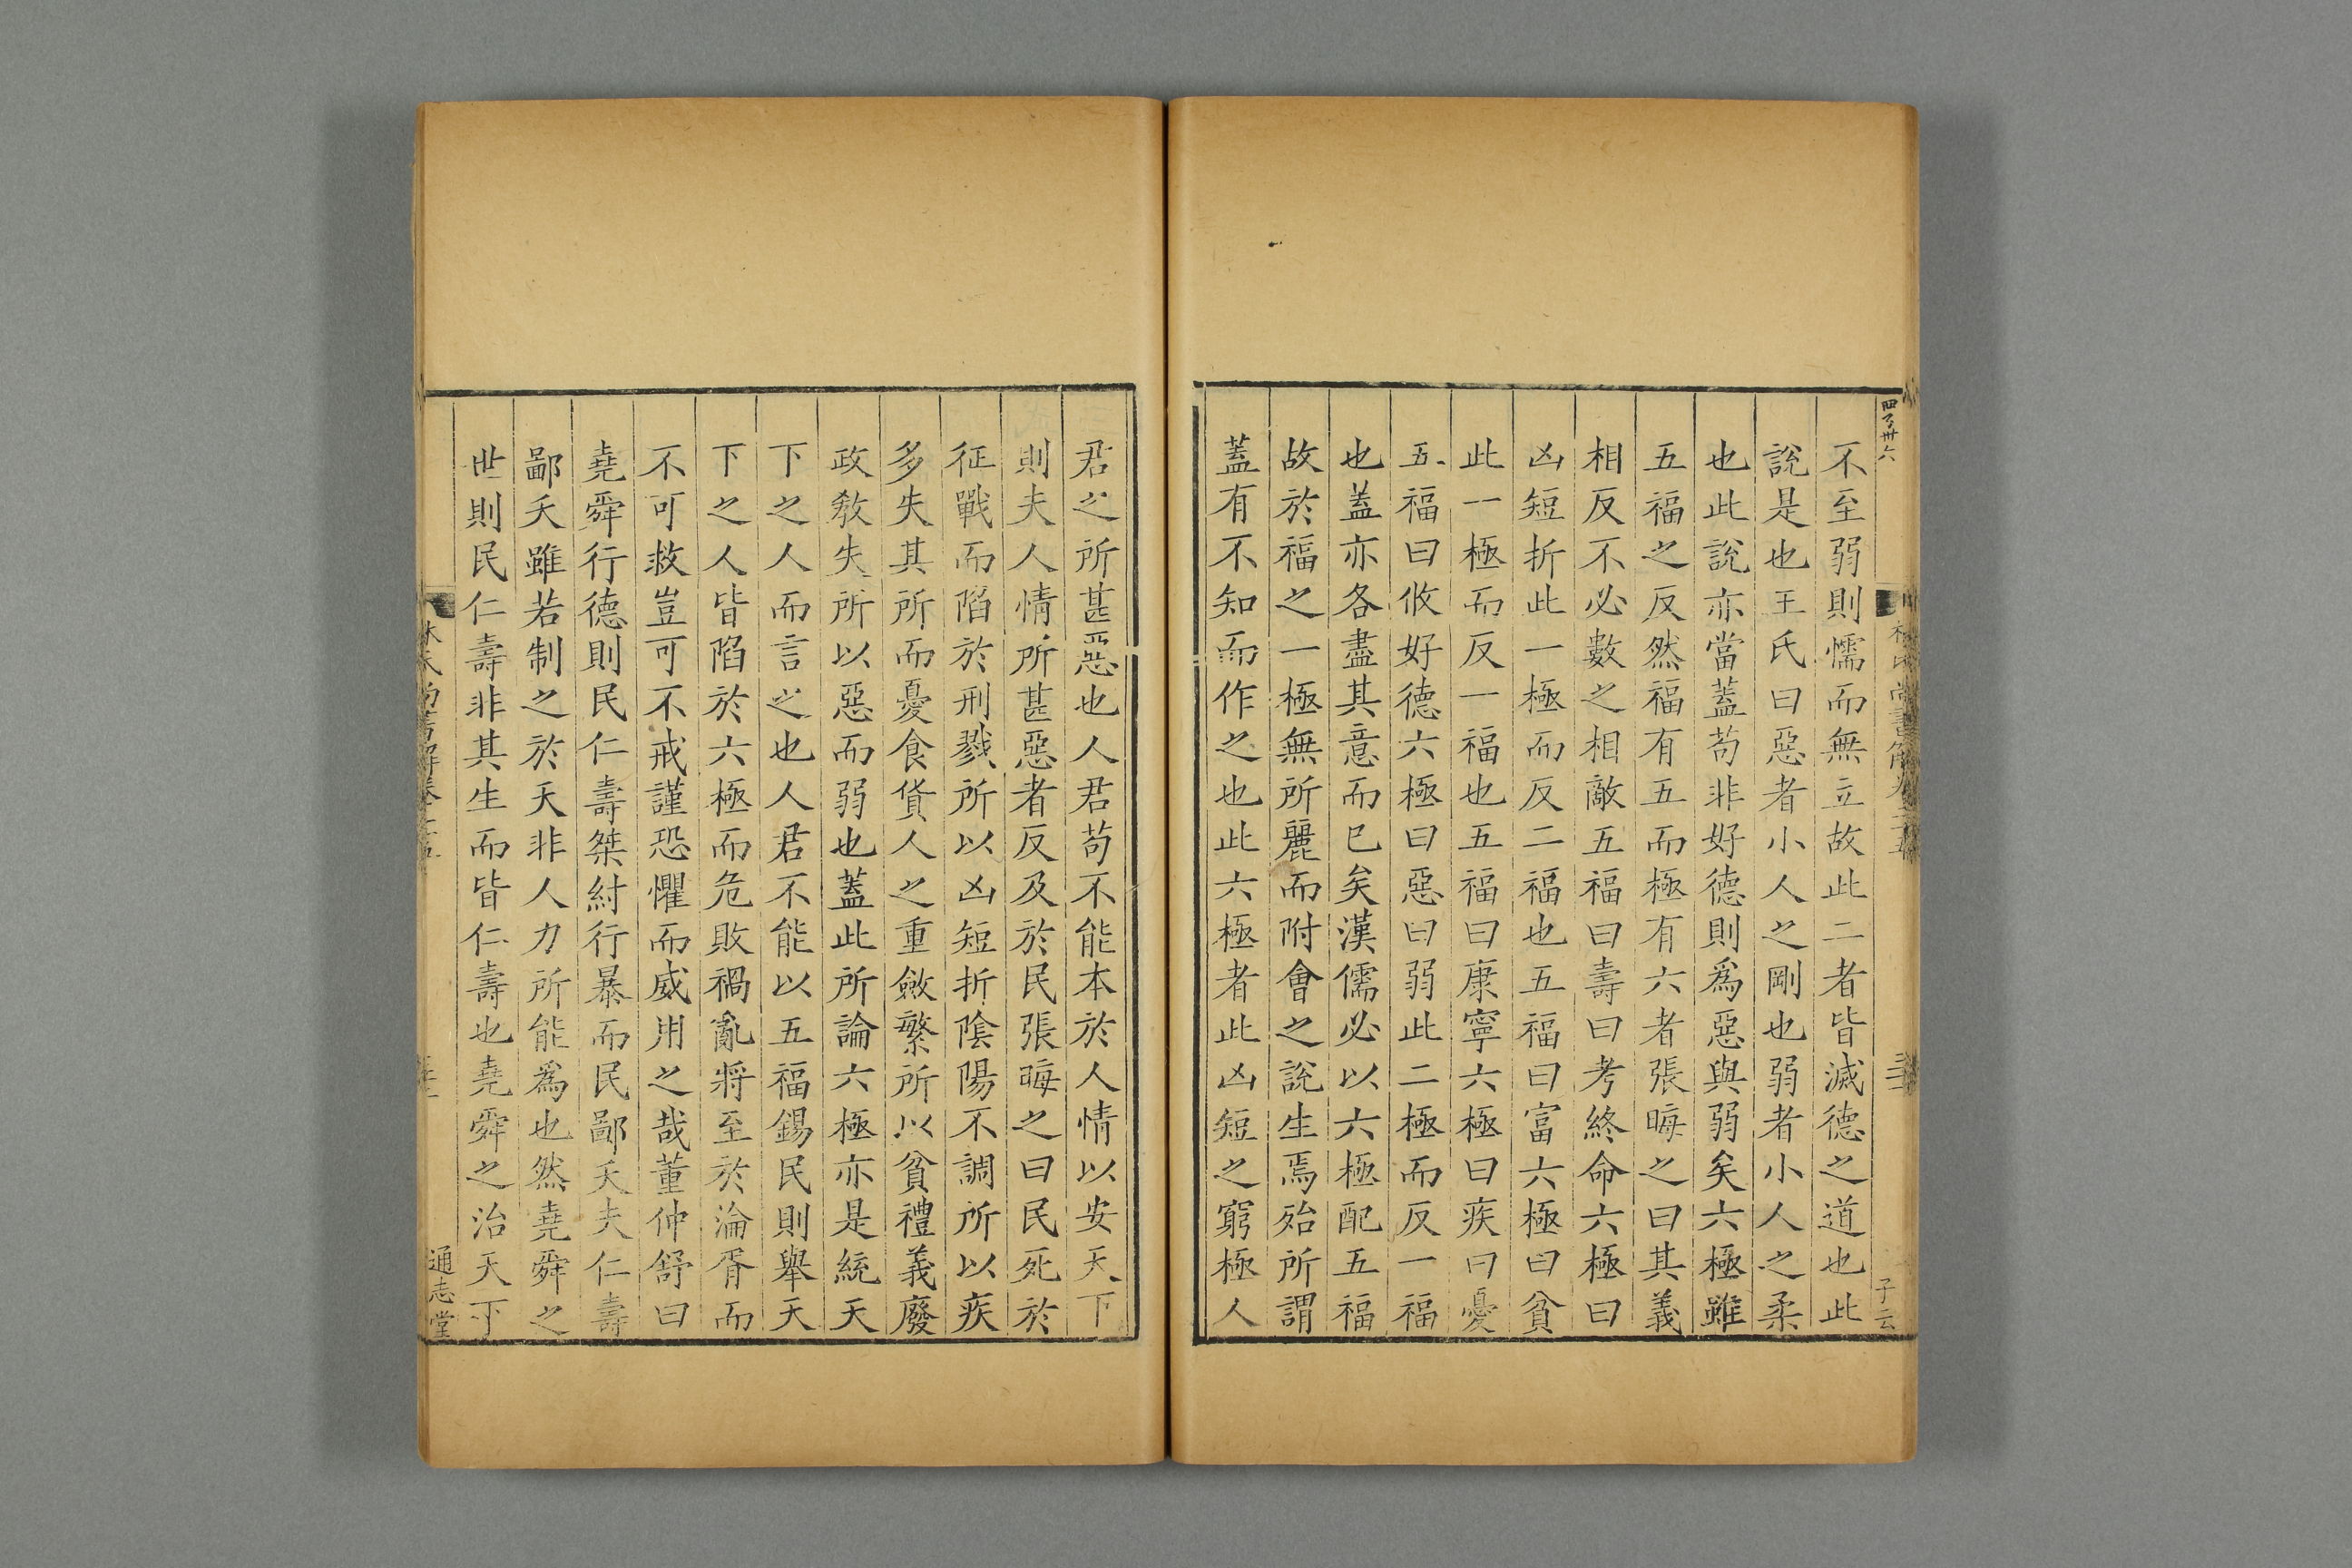 不至弱則懦而無立故此二者皆滅德之道也此
說是也王氏曰惡者小人之剛也弱者小人之柔
也此說亦當蓋苟非好德則爲惡與弱矣六極雖
五福之反然福有五而極有六者張晦之曰其義
相反不必數之相敵五福曰壽曰考終命六極曰
凶短折此一極而反二福也五福曰富六極曰貧
此一極而反一福也五福曰康寧六極曰疾曰憂
五福曰攸好德六極曰惡曰弱此二極而反一福
也蓋亦各盡其意而已矣漢儒必以六極配五福
故於福之一極無所麗而附會之說生焉殆所謂
蓋有不知而作之也此六極者此凶短之窮極人
君之所甚惡也人君苟不能本於人情以安天下
則夫人情所甚惡者反及於民張晦之曰民死於
征戰而陷於刑戮所以凶短折陰陽不調所以疾
多失其所而憂食貨人之重斂繁所以貧禮義廢
政教失所以惡而弱也蓋此所論六極亦是統天
下之人而言之也人君不能以五福錫民則舉天
下之人皆陷於六極而危敗禍亂將至於淪胥而
不可救豈可不戒謹恐懼而威用之哉董仲舒曰
堯舜行德則民仁壽桀紂行暴而民鄙夭夫仁壽
鄙夭雖若制之於天非人力所能爲也然堯舜之
世則民仁壽非其生而皆仁壽也堯舜之治天下
林氏尚書解卷二十五
通志堂
子云